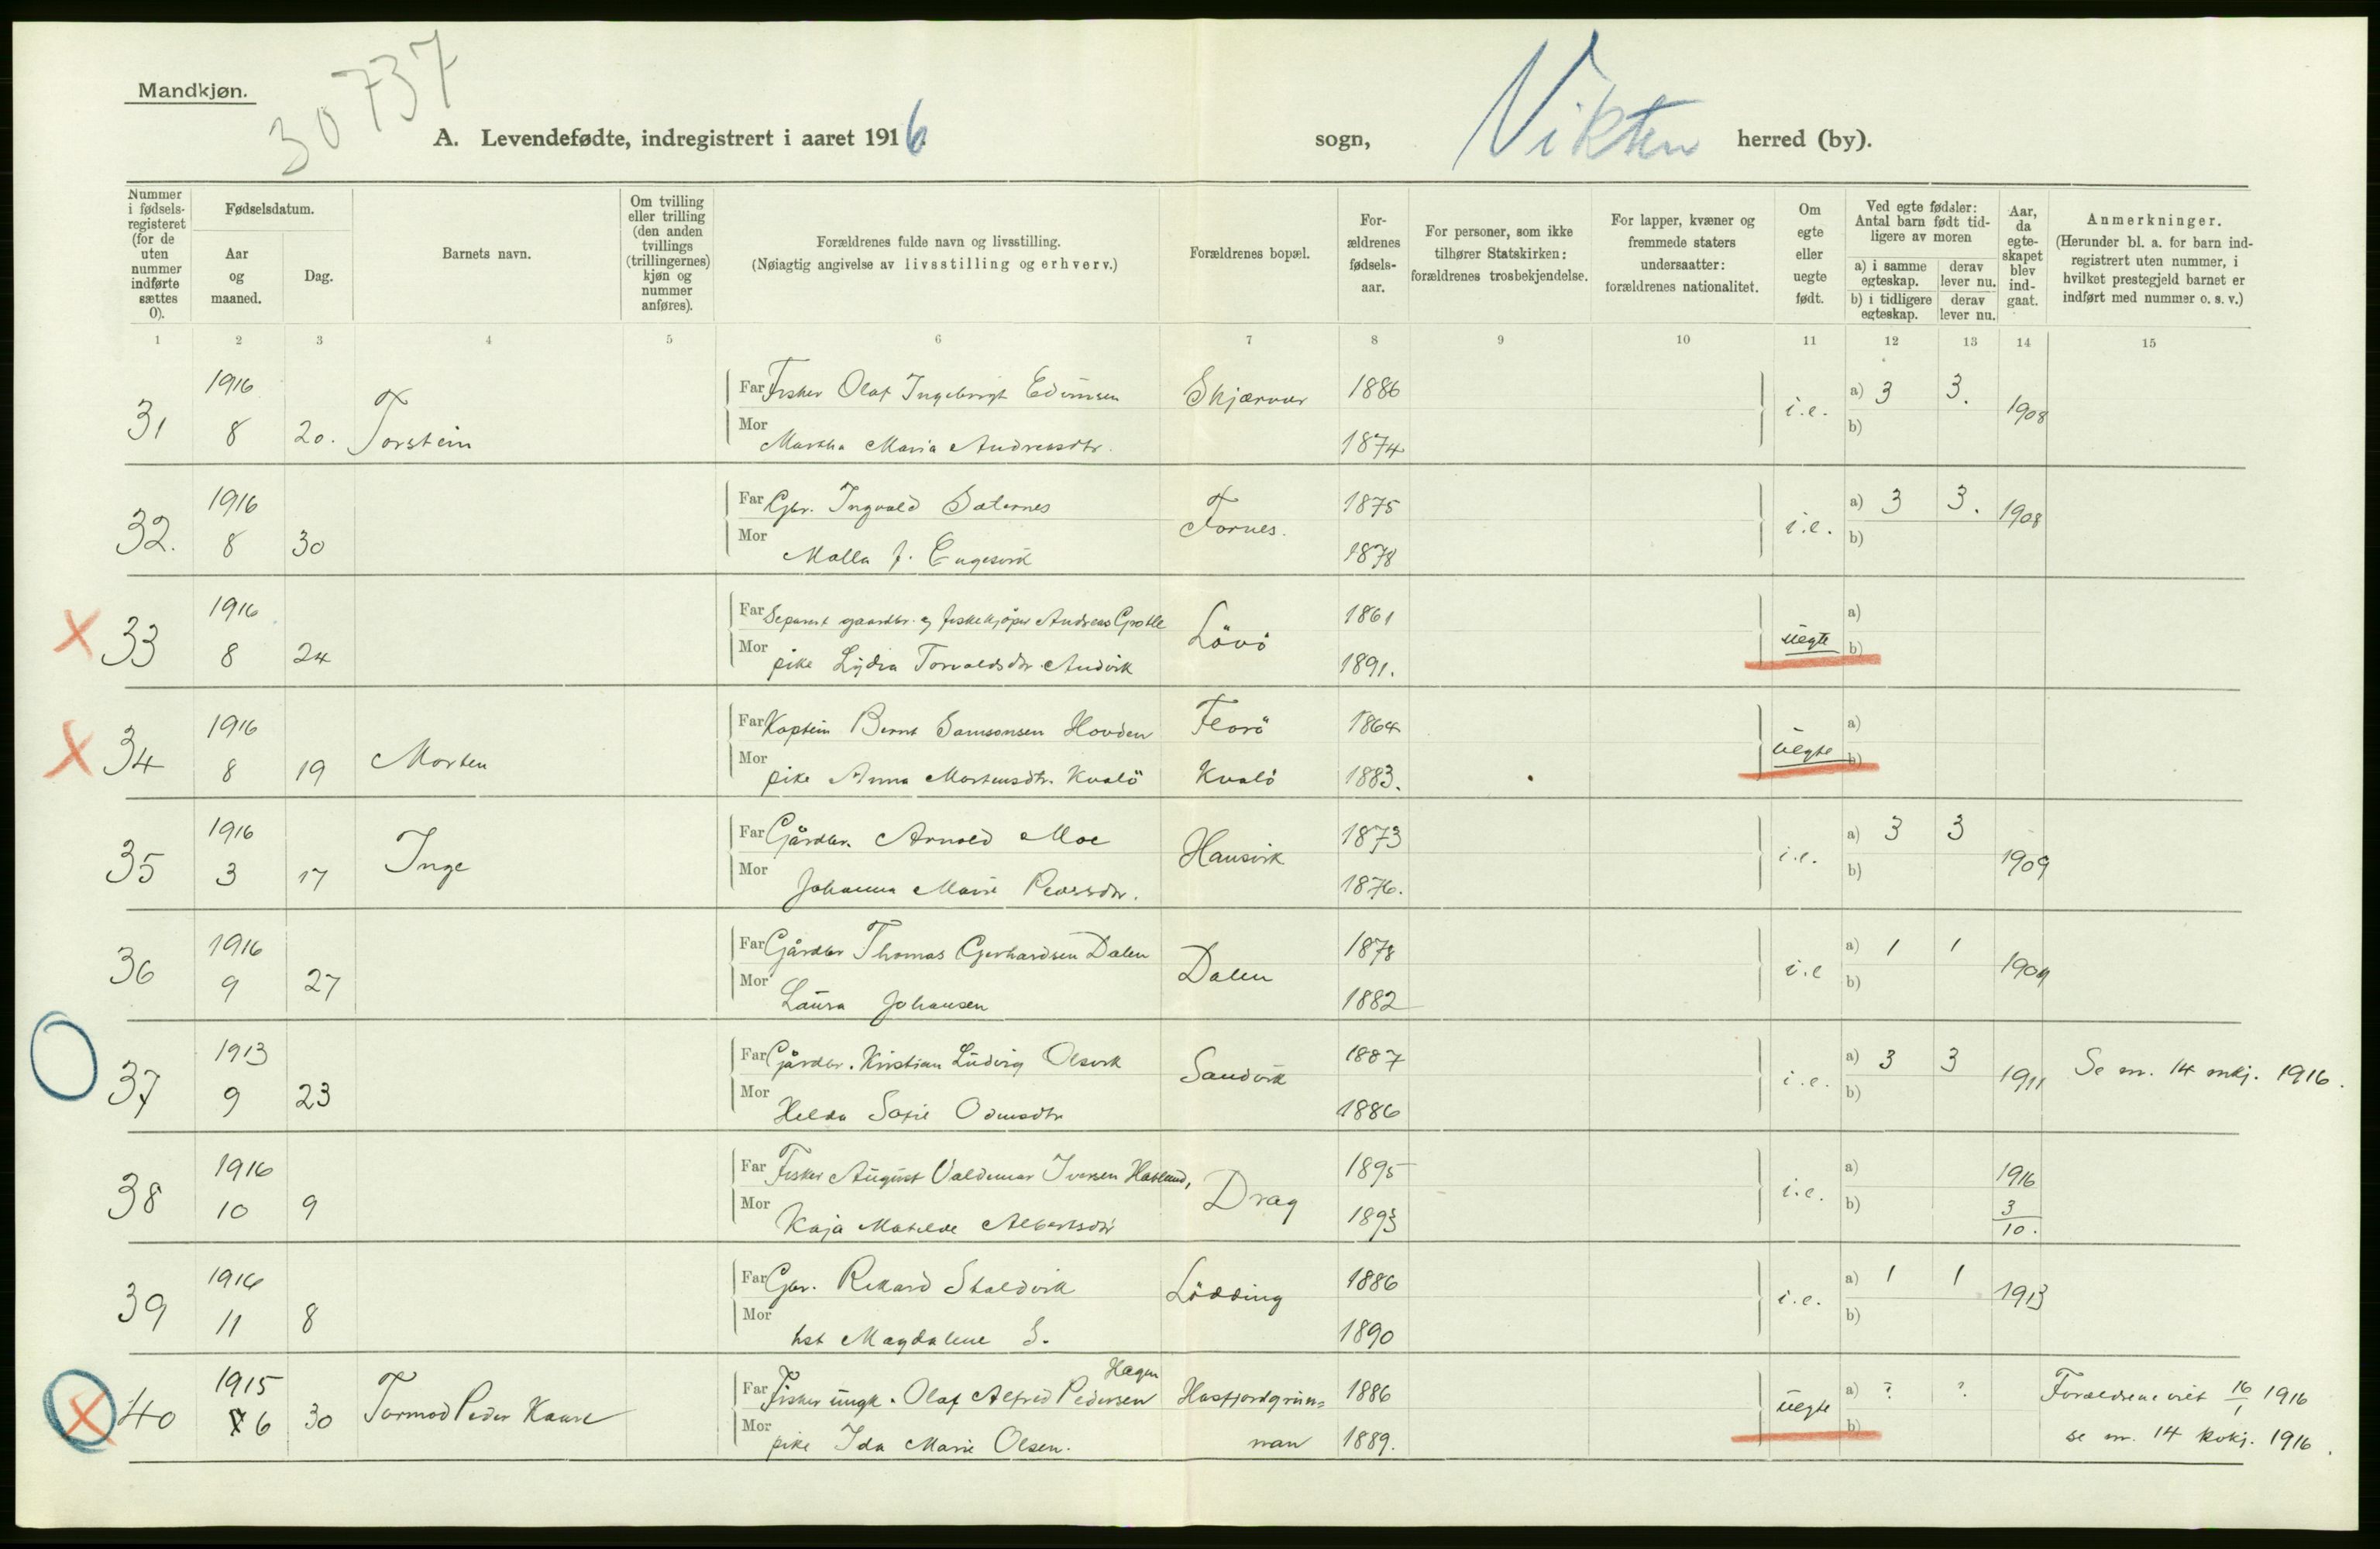 Mandkjøn.
30737
A. Levendefødte, indregistrert i aaret 1916. sogn, Vikten herred (by).
Nummer i fødsels-registeret (for de uten nummer indførte sættes 0).
Fødselsdatum.
Aar og maaned.
Dag.
Barnets navn.
Om tvilling eller trilling (den anden tvillings (trillingernes) kjøn og nummer anføres).
Forældrenes fulde navn og livsstilling.
(Nøiagtig angivelse av livsstilling og erhverv.)
Forældrenes bopæl.
For-ældrenes fødsels-aar.
For personer, som ikke tilhører Statskirken: forældrenes trosbekjendelse.
For lapper, kvæner og fremmede staters undersaatter: forældrenes nationalitet.
Om egte eller uegte født.
Ved egte fødsler: Antal barn født tid-ligere av moren
a) i samme egteskap. derav lever nu.
b) i tidligere egteskap. derav lever nu.
Aar, da egte-skapet blev ind-gaat.
Anmerkninger.
(Herunder bl. a. for barn ind-registrert uten nummer, i hvilket prestegjeld barnet er indført med nummer o. s. v.)
1 2 3 4 5 6 7 8 9 10 11 12 13 14 15
1916 Far Fisker Olaf Ingebrigt Edinsen Skjærvær 1886 a) 3 3.
31 8 20. Torstein Mor Martha Maria Andreasdtr. 1874 i.e. b) 1908
1916 Far Gbr. Ingvald Saternes Fornes. 1875 a) 3 3. 1908
32. 8 30 Mor Malla J. Engesvik 1878 i.e. b)
1916 Far Separert gaardbr. og fiskekjöper Andreas Grotle Lövö 1861 a)
33 8 24 Mor pike Lydia Torvaldsdtr. Andvik 1891. uegte b)
1916 Far Kaptein Bernt Samsonsen Hovden Florö 1864 a)
34 8 19 Morten Mor pike Anna Mortensdtr. Kvalö Kvalö 1883. uegte b)
1916 Far Gårdbr. Arnold Moe Hansvik 1873 a) 3 3
35 3 17 Inge Mor Johanna Marie Pedersdtr. 1876. i.e. b) 1909
1916 Far Gårdbr Thomas Gerhardsen Dalen Dalen 1878 a) 1 1
36 9 27 Mor Laura Johansen 1882 i.e b) 1909
1913 Far Gårdbr. Kristian Ludvig Olsvik Sandvik 1887 a) 3 3 Se nr. 14 mkj. 1916.
37 9 23 Mor Helda Sofie Odinsdtr 1886 i.e. b) 1911
1916 Far Fisker August Valdemar Iversen Havland, Drag 1895 a) 1916
38 10 9 Mor Kaja Matilde Albertsdtr 1893 i.e. b) 3/10.
1916 Far Gbr. Rikard Skaldvik Lödding 1886 a) 1 1 1913
39 11 8 Mor hst Magdalene S. 1890 i.e. b)
Hagen
1915 Far Fisker ungk. Olaf Alfred Pedersen Hasfjordgrun= 1886 a) ? ? Forældrene viet 16/1 1916
40 6 30 Tormod Peder Kaare Mor pike Ida Marie Olsen. nan 1889. uegte b) se nr. 14 kvkj. 1916.